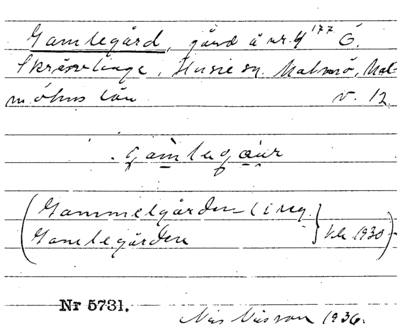 Gamlegård, gård å nr 4¹⁷⁷ Ö.
Skrävlinge, Husie sn. Malmö, Mal-
möhus län v. 12
gamlegaur
(Gammelgården
Gamlegården } 1930)
Nr 5731.
Nils Nilsson 1936.